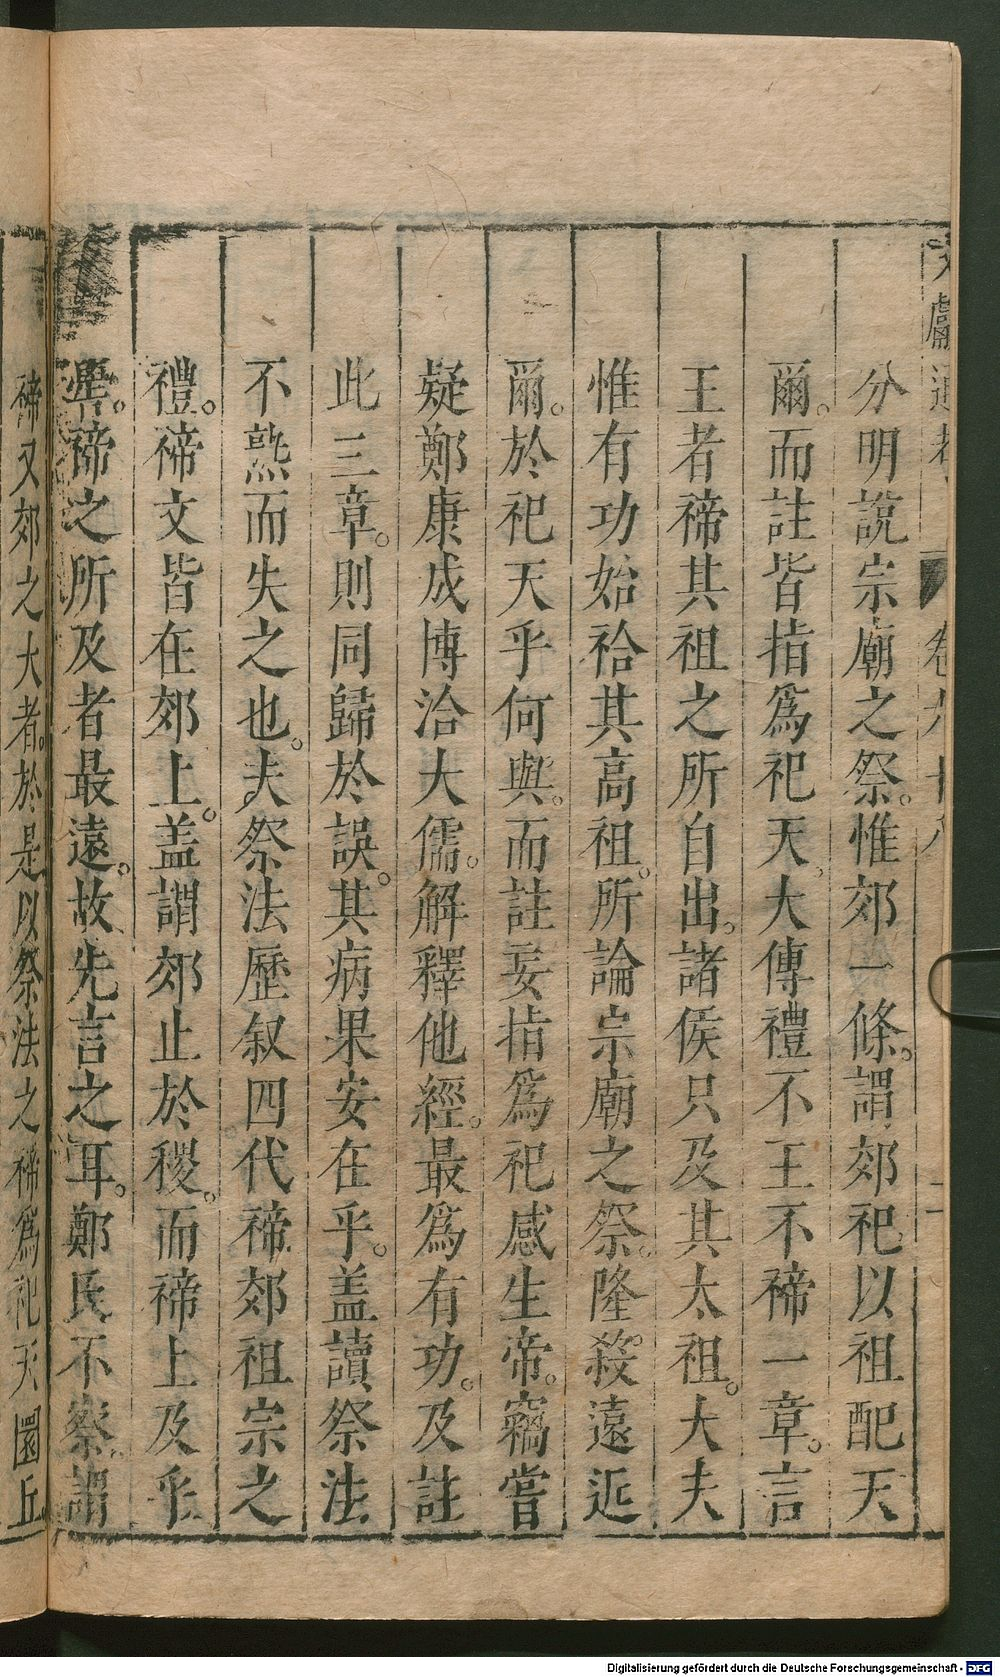 文獻通考
卷九十八
分明說宗廟之祭。惟郊一條。謂郊祀以祖配天
爾。而註皆指爲祀天。大傳禮不王不禘一章。言
王者禘其祖之所自出。諸侯只及其太祖。大夫
惟有功始祫其高祖。所論宗廟之祭。隆殺遠近
爾。於祀天乎何與。而註妄指爲祀感生帝。竊嘗
疑鄭康成博洽大儒。解釋他經。最爲有功。及註
此三章。則同歸於誤。其病果安在乎。盖讀祭法
不熟而失之也。夫祭法歷叙四代禘郊祖宗之
禮。禘文皆在郊上。盖謂郊止於稷。而禘上及乎
嚳。禘之所及者最遠。故先言之耳。鄭氏不察。謂
禘又郊之大者。於是以祭法之禘爲祀天圜丘
Digitalisierung gefördert durch die Deutsche Forschungsgemeinschaft - DFG